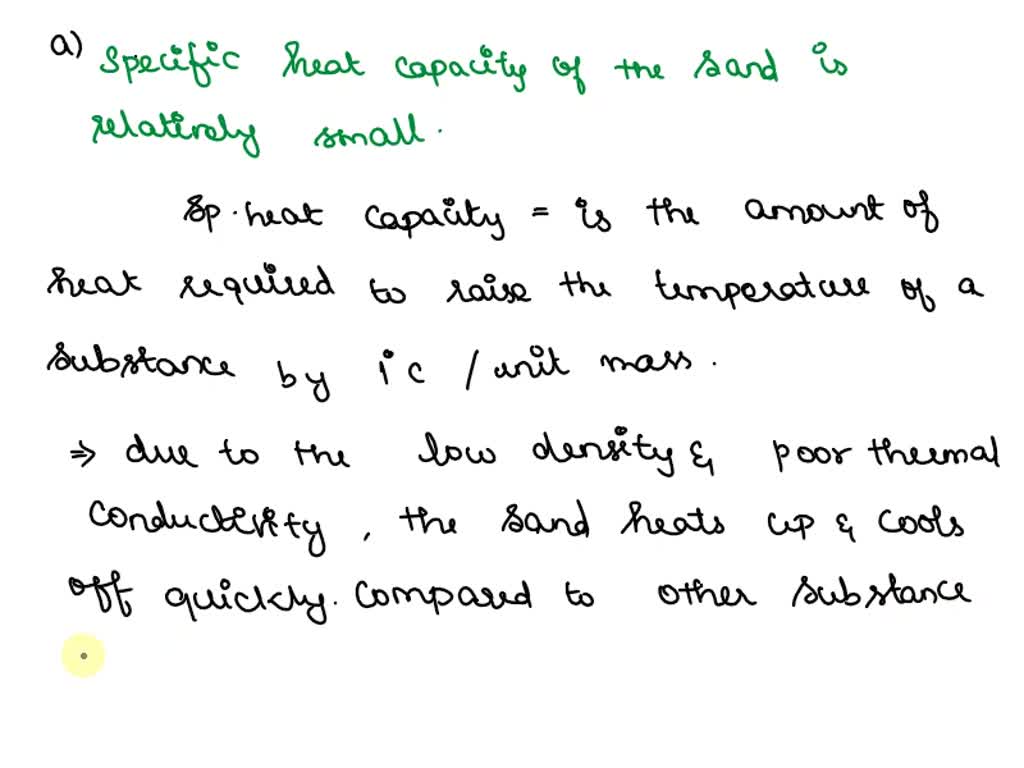 a) Specific heat capacity of the sand is
relatively small.
Sp. heat capacity = is the amount of
heat required to raise the temperature of a
substance by 1°C / unit mass.
⇒ due to the low density & poor thermal
conductivity, the sand heats up & cools
off quickly. Compared to other substance